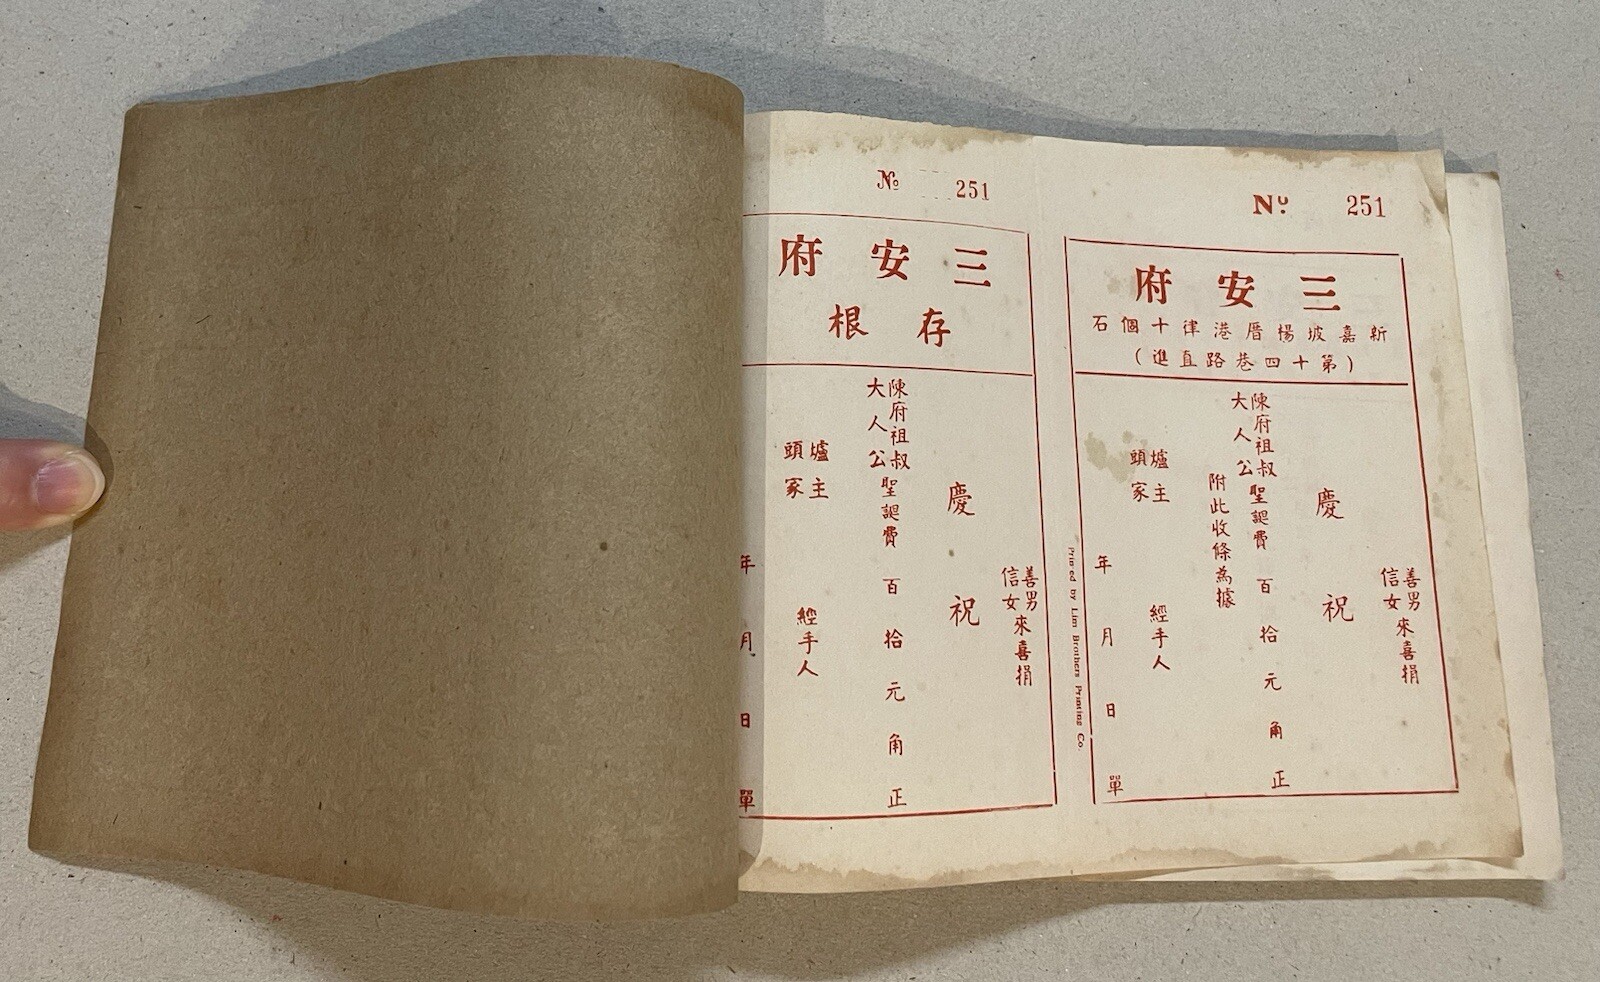 № 251
三安府
存根
善男信女來喜捐
慶祝
陳府祖叔大人公聖誕費 百 拾 元 角 正
爐主頭家
經手人
年 月 日 單
Printed by Lim Brothers Printing Co.
Nº 251
三安府
新嘉坡楊厝港律十個石
(第十四巷路直進)
善男信女來喜捐
慶祝
陳府祖叔大人公聖誕費 百 拾 元 角 正
附此收條為據
爐主頭家
經手人
年 月 日 單